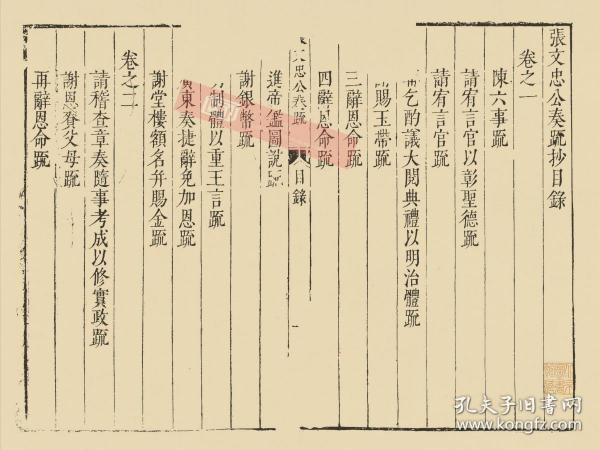 張文忠公奏疏抄目錄
卷之一
陳六事疏
請宥言官以彰聖德疏
請宥言官疏
乞酌議大閱典禮以明治體疏
賜玉帶疏
三辭恩命疏
四辭恩命疏
公奏疏 目錄
進帝鑑圖說疏
謝銀幣疏
制體以重王言疏
東奏捷辭免加恩疏
謝堂樓額名并賜金疏
卷之二
請稽查章奏隨事考成以修實政疏
謝恩賚父母疏
再辭恩命疏
孔夫子旧书网
www.kongfz.com